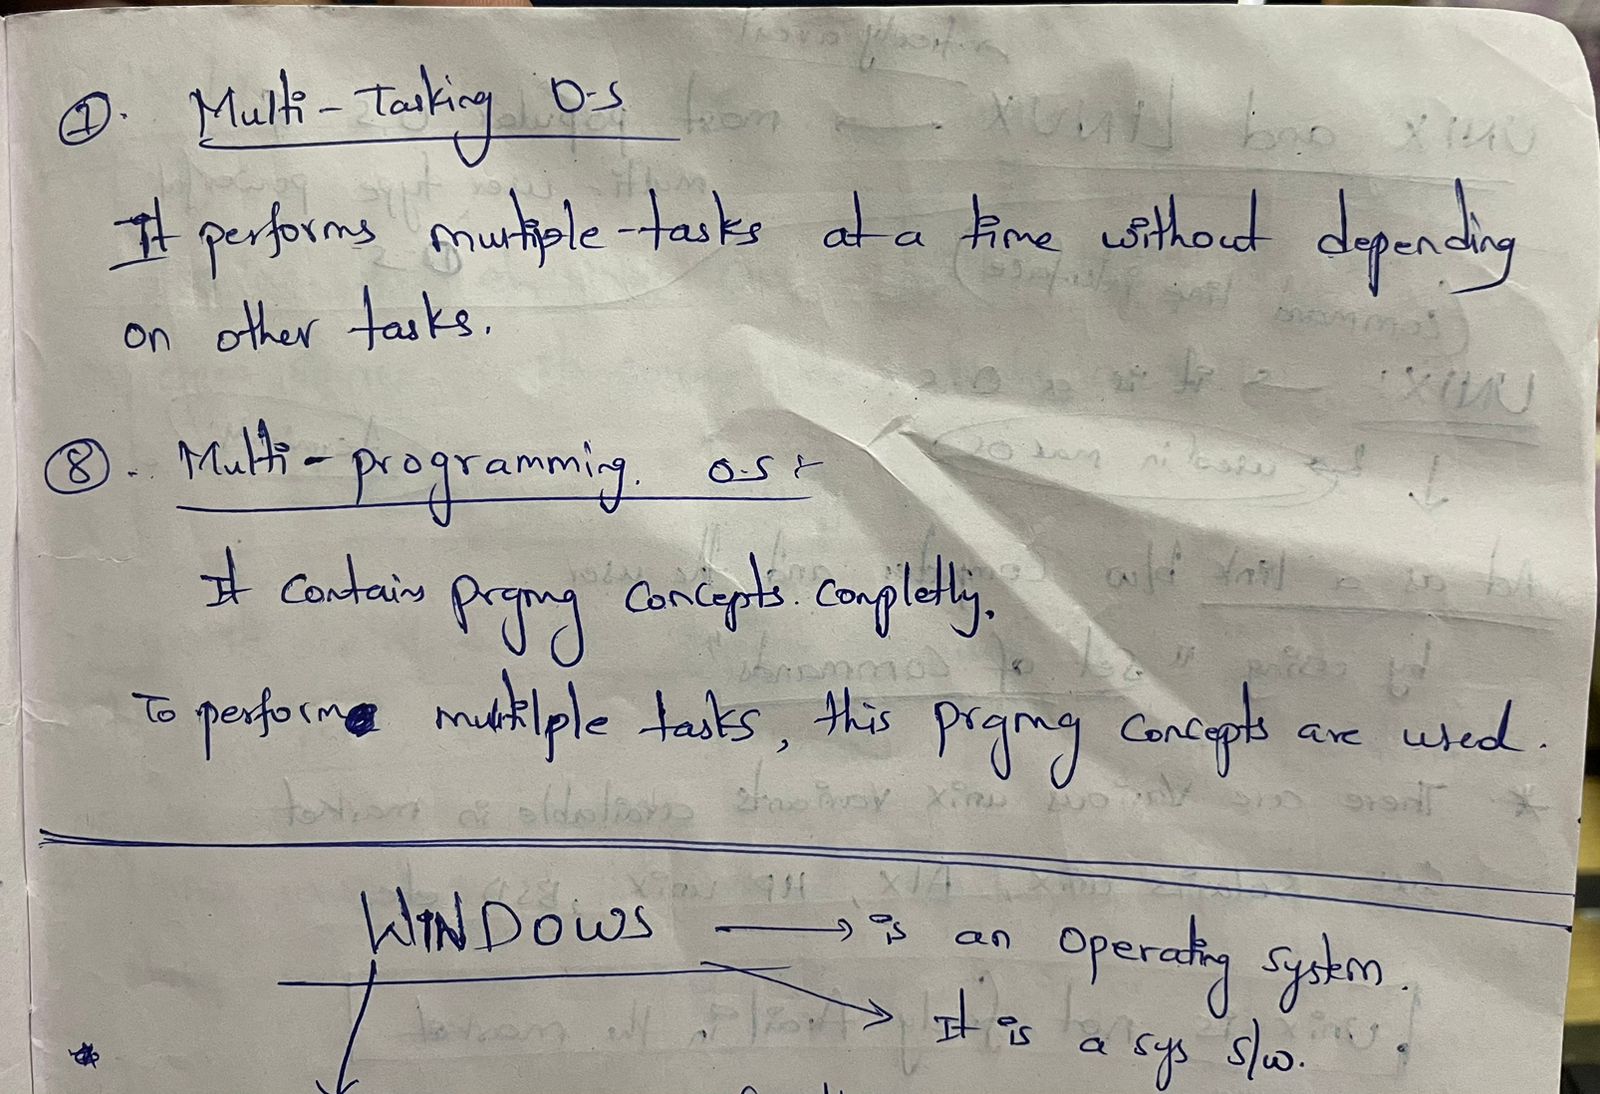 ①. Multi-Tasking O-S
It performs multiple-tasks at a time without depending
on other tasks.
⑧. Multi-programming. O-S:-
It contains prgmg concepts. completly.
To perform multilple tasks, this prgmg concepts are used.
WINDOWS → is an operating system.
It is a sys s/w.
*